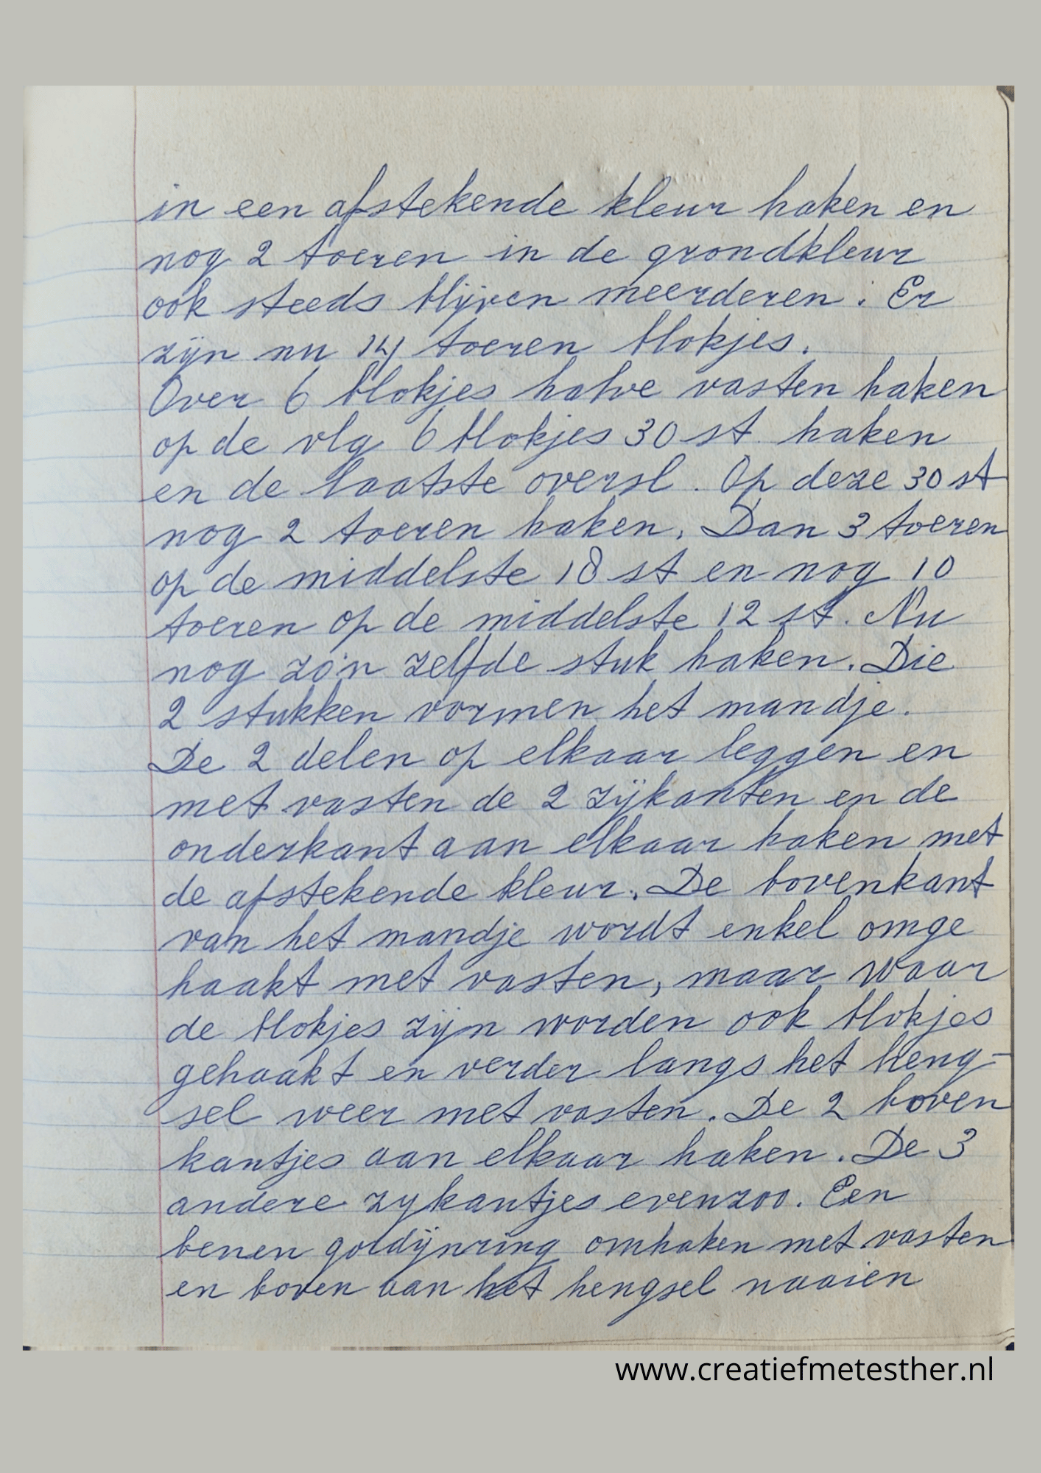 in een afstekende kleur haken en
nog 2 toeren in de grondkleur
ook steeds blijven meerderen. Er
zijn nu 14 toeren blokjes.
Over 6 blokjes halve vasten haken
op de vlg 6 blokjes 30 st haken
en de laatste oversl. Op deze 30 st
nog 2 toeren haken. Dan 3 toeren
op de middelste 18 st en nog 10
toeren op de middelste 12 st. Nu
nog zo'n zelfde stuk haken. Die
2 stukken vormen het mandje.
De 2 delen op elkaar leggen en
met vasten de 2 zijkanten en de
onderkant aan elkaar haken met
de afstekende kleur. De bovenkant
van het mandje wordt enkel omge
haakt met vasten, maar waar
de blokjes zijn worden ook blokjes
gehaakt en verder langs het heng-
sel weer met vasten. De 2 boven
kantjes aan elkaar haken. De 3
andere zykantjes evenzoo. Een
benen gordijnring omhaken met vasten
en boven aan het hengsel naaien
www.creatiefmetesther.nl